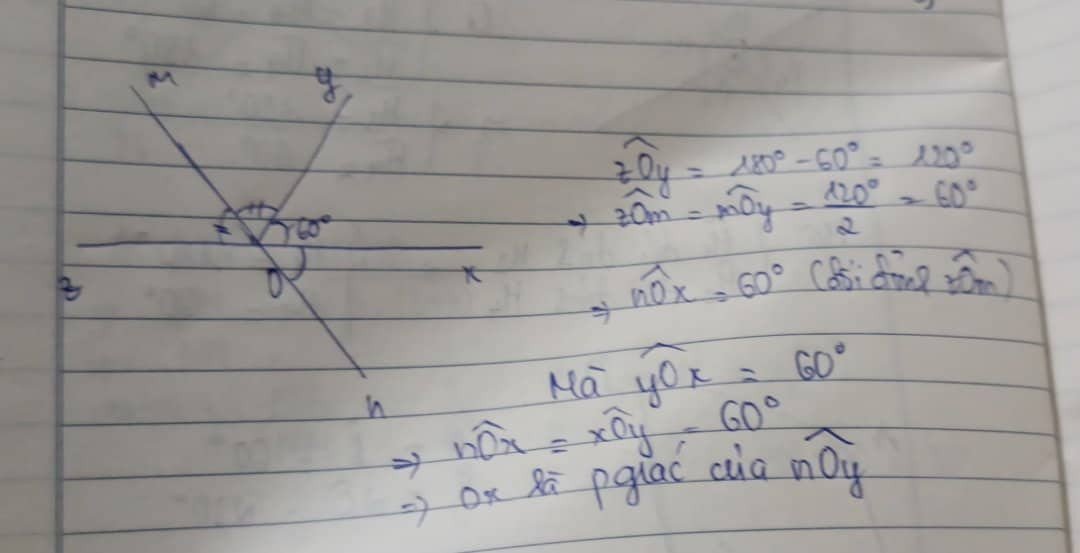 m y
60°
z O x
n
zÔy = 180° - 60° = 120°
⇒ zÔm = mÔy = 120°/2 = 60°
⇒ nÔx = 60° (đối đỉnh zÔm)
Mà yÔx = 60°
⇒ nÔx = xÔy = 60°
⇒ Ox là pgiác của nÔy